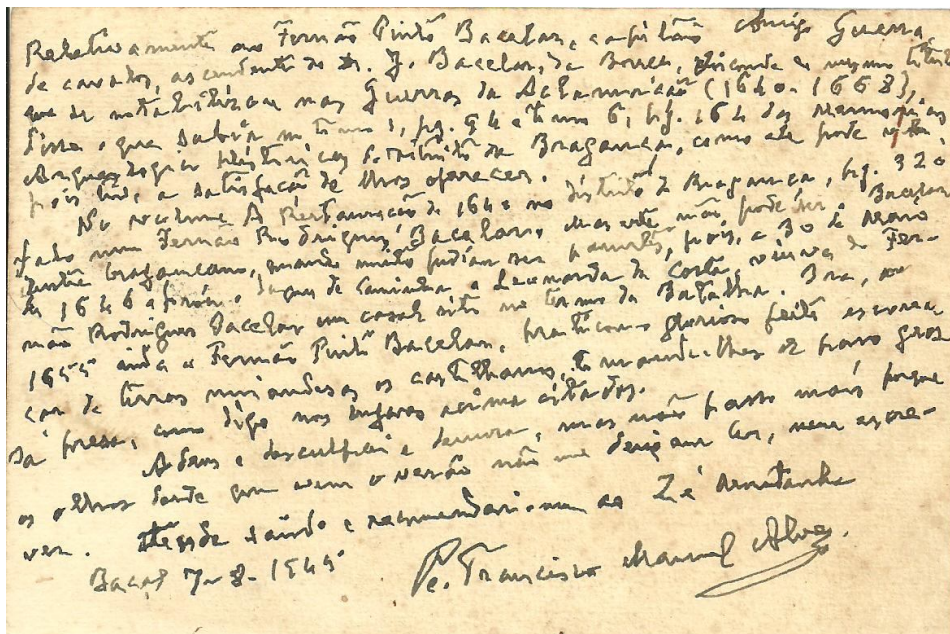 Relativamente ao Fernão Pinto Bacelar, capitão Amigo Guerra,
de cavalos, ascendente do Sr. J. Bacelar, da Bouça, Visconde do mesmo titulo
que se notabilizou nas Guerras da Aclamação (1640-1668),
disse o que sabia no tomo 1, pg. 94 e tomo 6, pg. 164 das Memorias
Arqueologico-Históricas do distrito de Bragança, como ele pode ver,
pois tive a satisfação de lhos oferecer.
No volume A Restauração de 1640 no distrito de Bragança, pg. 320
falo num Fernão Rodrigues Bacelar, mas este não pode ser o Bacelar
bragançano, quando muito podiam ser parentes, pois, a 30 de Março
de 1646 aforou o Duque de Caminha a Leonarda da Costa, viuva de Fer-
não Rodrigues Bacelar um casal sito no termo da Batalha. Ora, em
1655 ainda o Fernão Pinto Bacelar, praticou o glorioso feito escorra-
çar de terras mirandesas os castelhanos, tomando-lhes de famo gros-
sa presa, como digo nos lugares acima citados.
Adeus e desculpai a demora, mas não posso mais porque
os olhos desde que veio o verão não me deixam ler, nem escre-
ver. saúde e recomendações ao Zé Montanha
Baçal 7-8-1945
Pe. Francisco Manuel Alves.